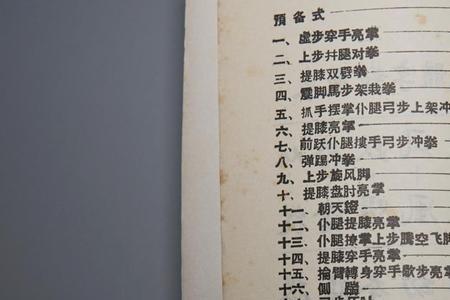 预备式
一、虚步穿手亮掌
二、上步拼腿对拳
三、提膝双劈拳
四、震脚馬步架栽拳
五、抓手摆掌仆腿弓步上架冲
六、提膝亮掌
七、前跃仆腿摟手弓步冲拳
八、弹踢冲拳
九、上步旋风脚
十、提膝盘肘亮掌
十一、朝天鐙
十二、仆腿提膝亮掌
十三、仆腿撩掌上步騰空飞脚
十四、提膝穿手亮掌
十五、掄臂轉身穿手歇步亮
十六、侧